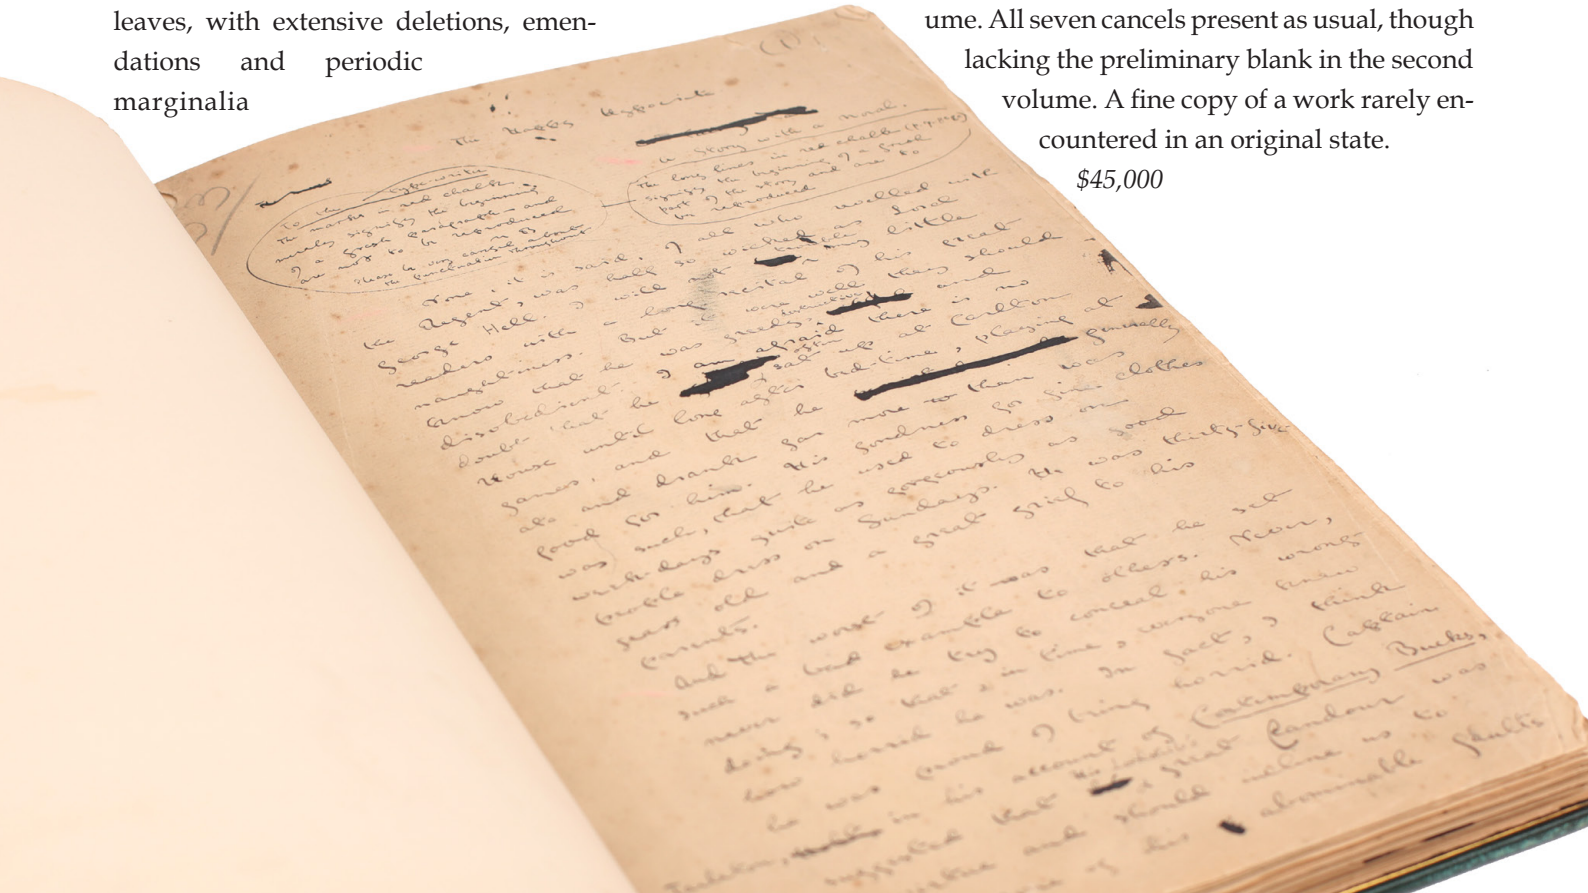 leaves, with extensive deletions, emen-
dations and periodic
marginalia
ume. All seven cancels present as usual, though
lacking the preliminary blank in the second
volume. A fine copy of a work rarely en-
countered in an original state.
$45,000
(1)
The Happy Hypocrite
a Story with a moral.
To the typewriter
The marks in red chalk
merely signify the beginning
of a fresh paragraph and
are not to be reproduced
Please be very careful about
the punctuation throughout
The long lines in red chalk
signify the beginning of a fresh
part of the story and are to
be reproduced
None, it is said, of all who revelled with
the Regent, was half so wicked as Lord
George Hell. I will not trouble my little
readers with a long recital of his great
naughtiness. But it were well they should
know that he was greedy, destructive and
disobedient. I am afraid there is no
doubt that he often sat up at Carlton
House until long after bed-time, playing at
games, and that he generally
ate and drank far more than was
good for him. His fondness for fine clothes
was such, that he used to dress on
week-days quite as gorgeously as good
people dress on Sundays. He was thirty-five
years old and a great grief to his
parents.
And the worst of it was that he set
such a bad example to others. Never,
never did he try to conceal his wrong-
doing; so that in time, everyone knew
how horrid he was. In fact, I think
he was proud of being horrid. Captain
Tarleton, in his account of Contemporary Bucks,
suggested that his Lordship's great Candour was
virtue and should incline us to
of his abominable faults